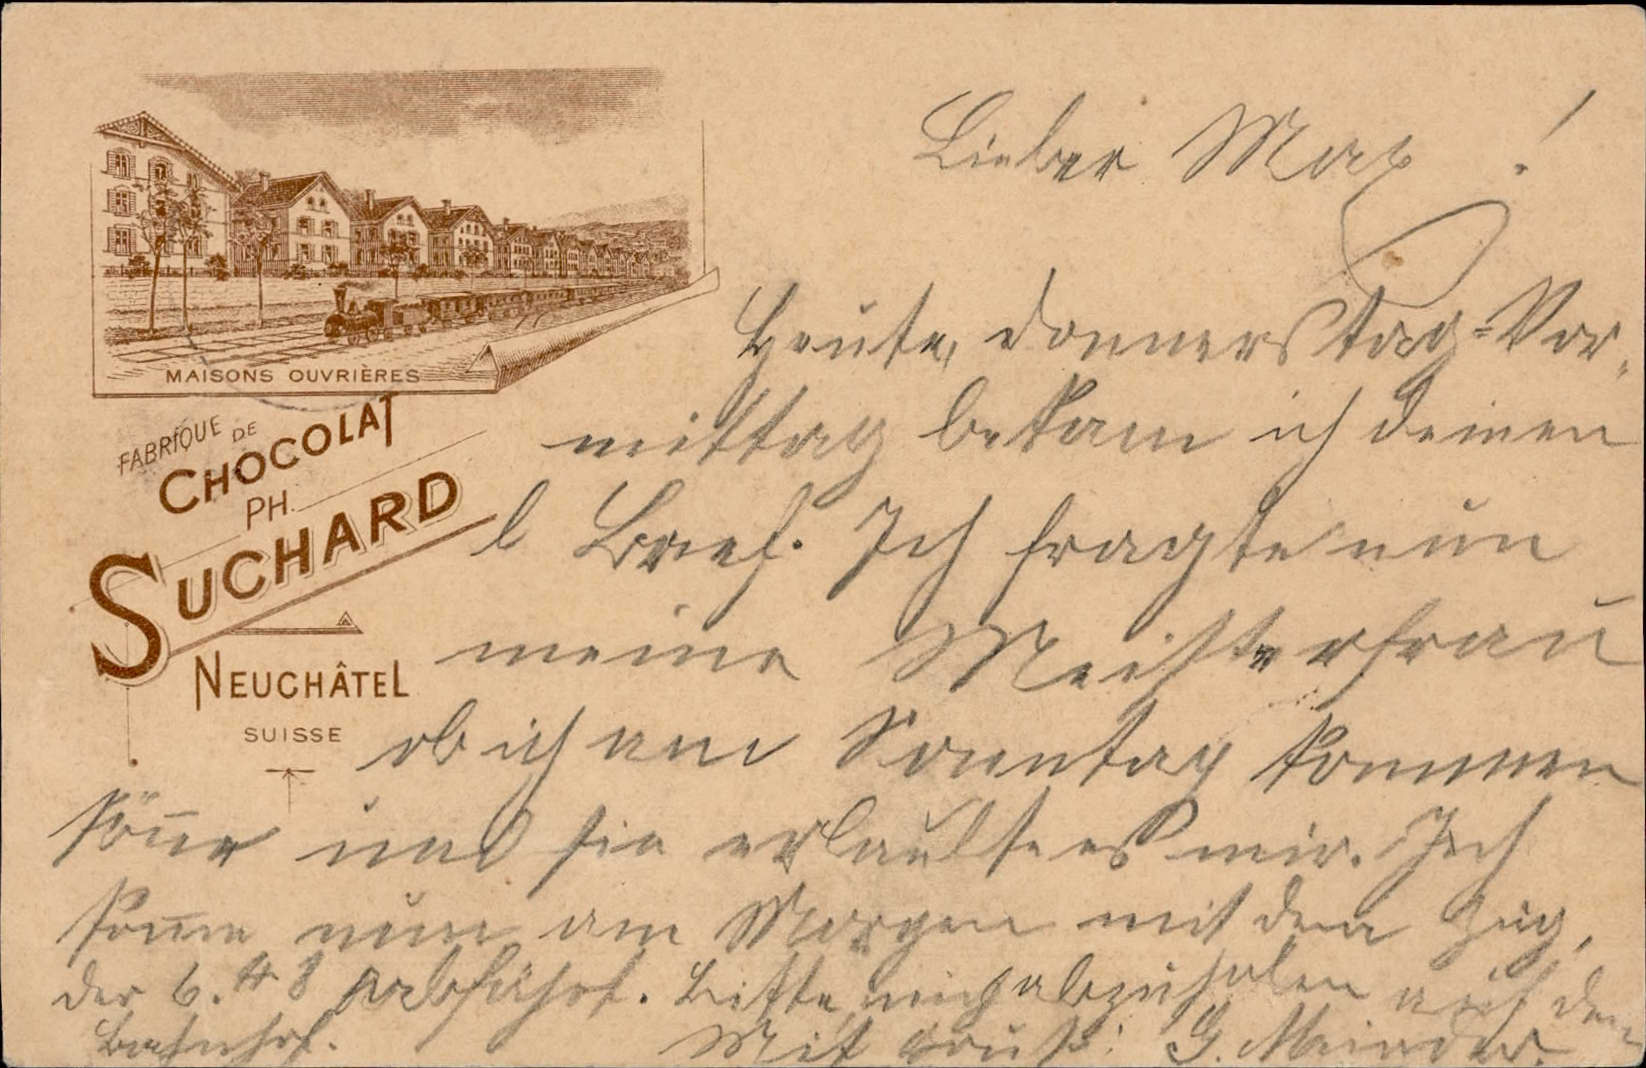 MAISONS OUVRIÈRES
FABRIQUE DE
CHOCOLAT
PH.
SUCHARD
NEUCHÂTEL
SUISSE
Lieber Max !
Heute, Donnerstag-Vor-
mittag bekam ich deinen
l Brief. Ich fragte nun
meine Meisterfrau
ob ich am Sonntag kommen
köñe und sie erlaubte es mir. Ich
kom̄e nun am Morgen mit dem Zug,
der 6. 48 abfährt. Bitte mich abzuholen auf dem
Bahnhof. Mit Gruß: G.